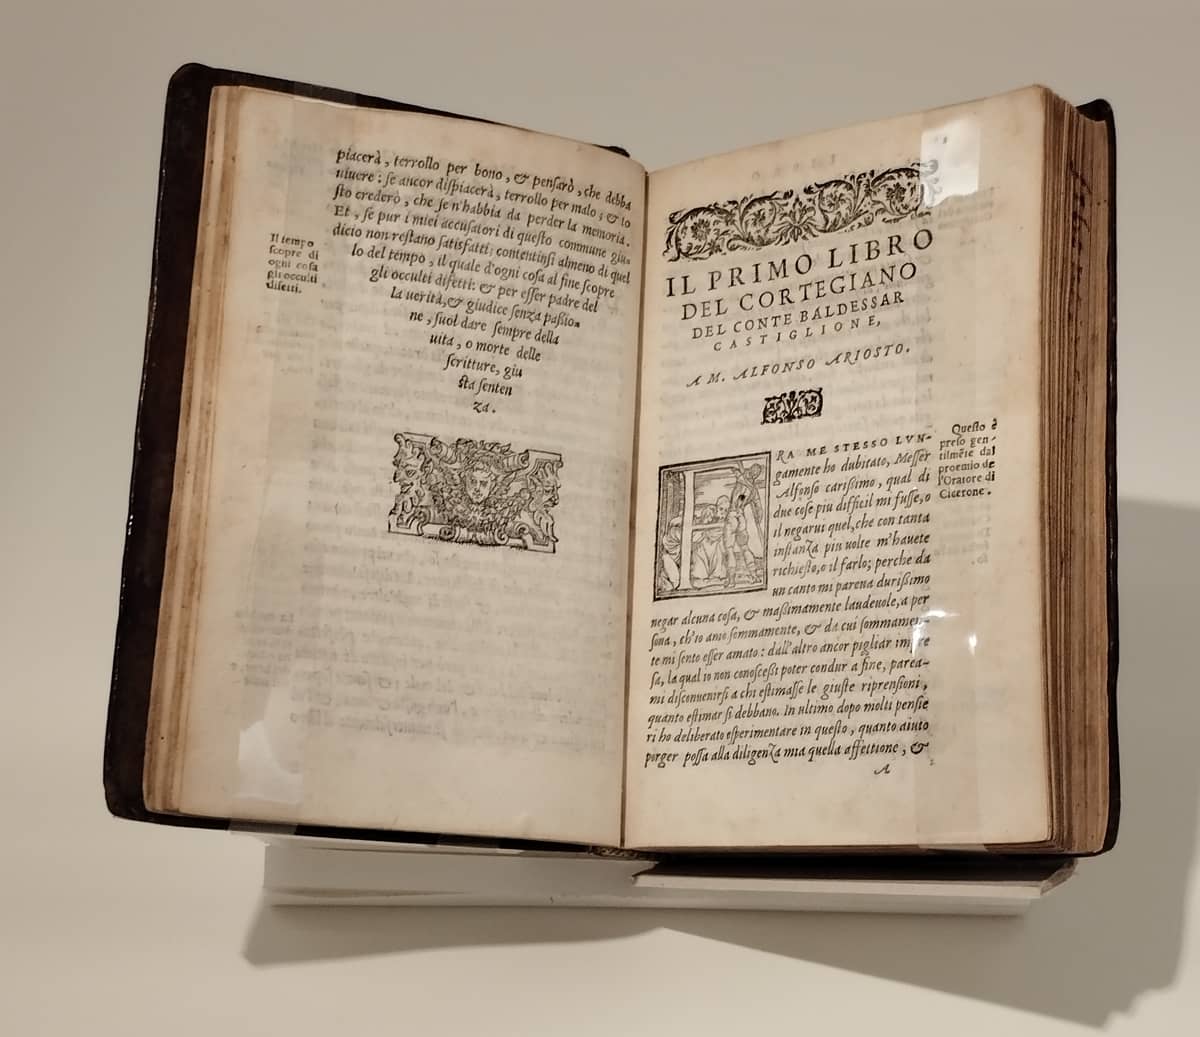 piacerà, terrollo per bono, & pensarò, che debba
uiuere: se ancor dispiacerà, terrollo per malo; & to
sto crederò, che se n'habbia da perder la memoria.
Et, se pur i miei accusatori di questo commune giu-
dicio non restano satisfatti; contentinsi almeno di quel
lo del tempo, il quale d'ogni cosa al fine scopre
gli occulti difetti: & per esser padre del
la uerità, & giudice senza passio-
ne, suol dare sempre della
uita, o morte delle
scritture, giu
sta senten
za.
Il tempo
scopre di
ogni cosa
gli occulti
difetti.
IL PRIMO LIBRO
DEL CORTEGIANO
DEL CONTE BALDESSAR
CASTIGLIONE,
A M. ALFONSO ARIOSTO.
FRA ME STESSO LVN-
gamente ho dubitato, Messer
Alfonso carissimo, qual di
due cose piu difficil mi fusse, o
il negarui quel, che con tanta
instanza piu uolte m'hauete
richiesto, o il farlo; perche da
un canto mi parena durissimo
negar alcuna cosa, & massimamente laudeuole, a per
sona, ch'io amo sommamente, & da cui sommamen-
te mi sento esser amato: dall'altro ancor pigliar impre
sa, la qual io non conoscessi poter condur a fine, parea-
mi disconuenirsi a chi estimasse le giuste riprensioni,
quanto estimar si debbano. In ultimo, dopo molti pensie
ri ho deliberato esperimentare in questo, quanto aiuto
porger possa alla diligenza mia quella affettione, &
A
Questo è
preso gen-
tilmẽte dal
proemio de
l'Oratore di
Cicerone.